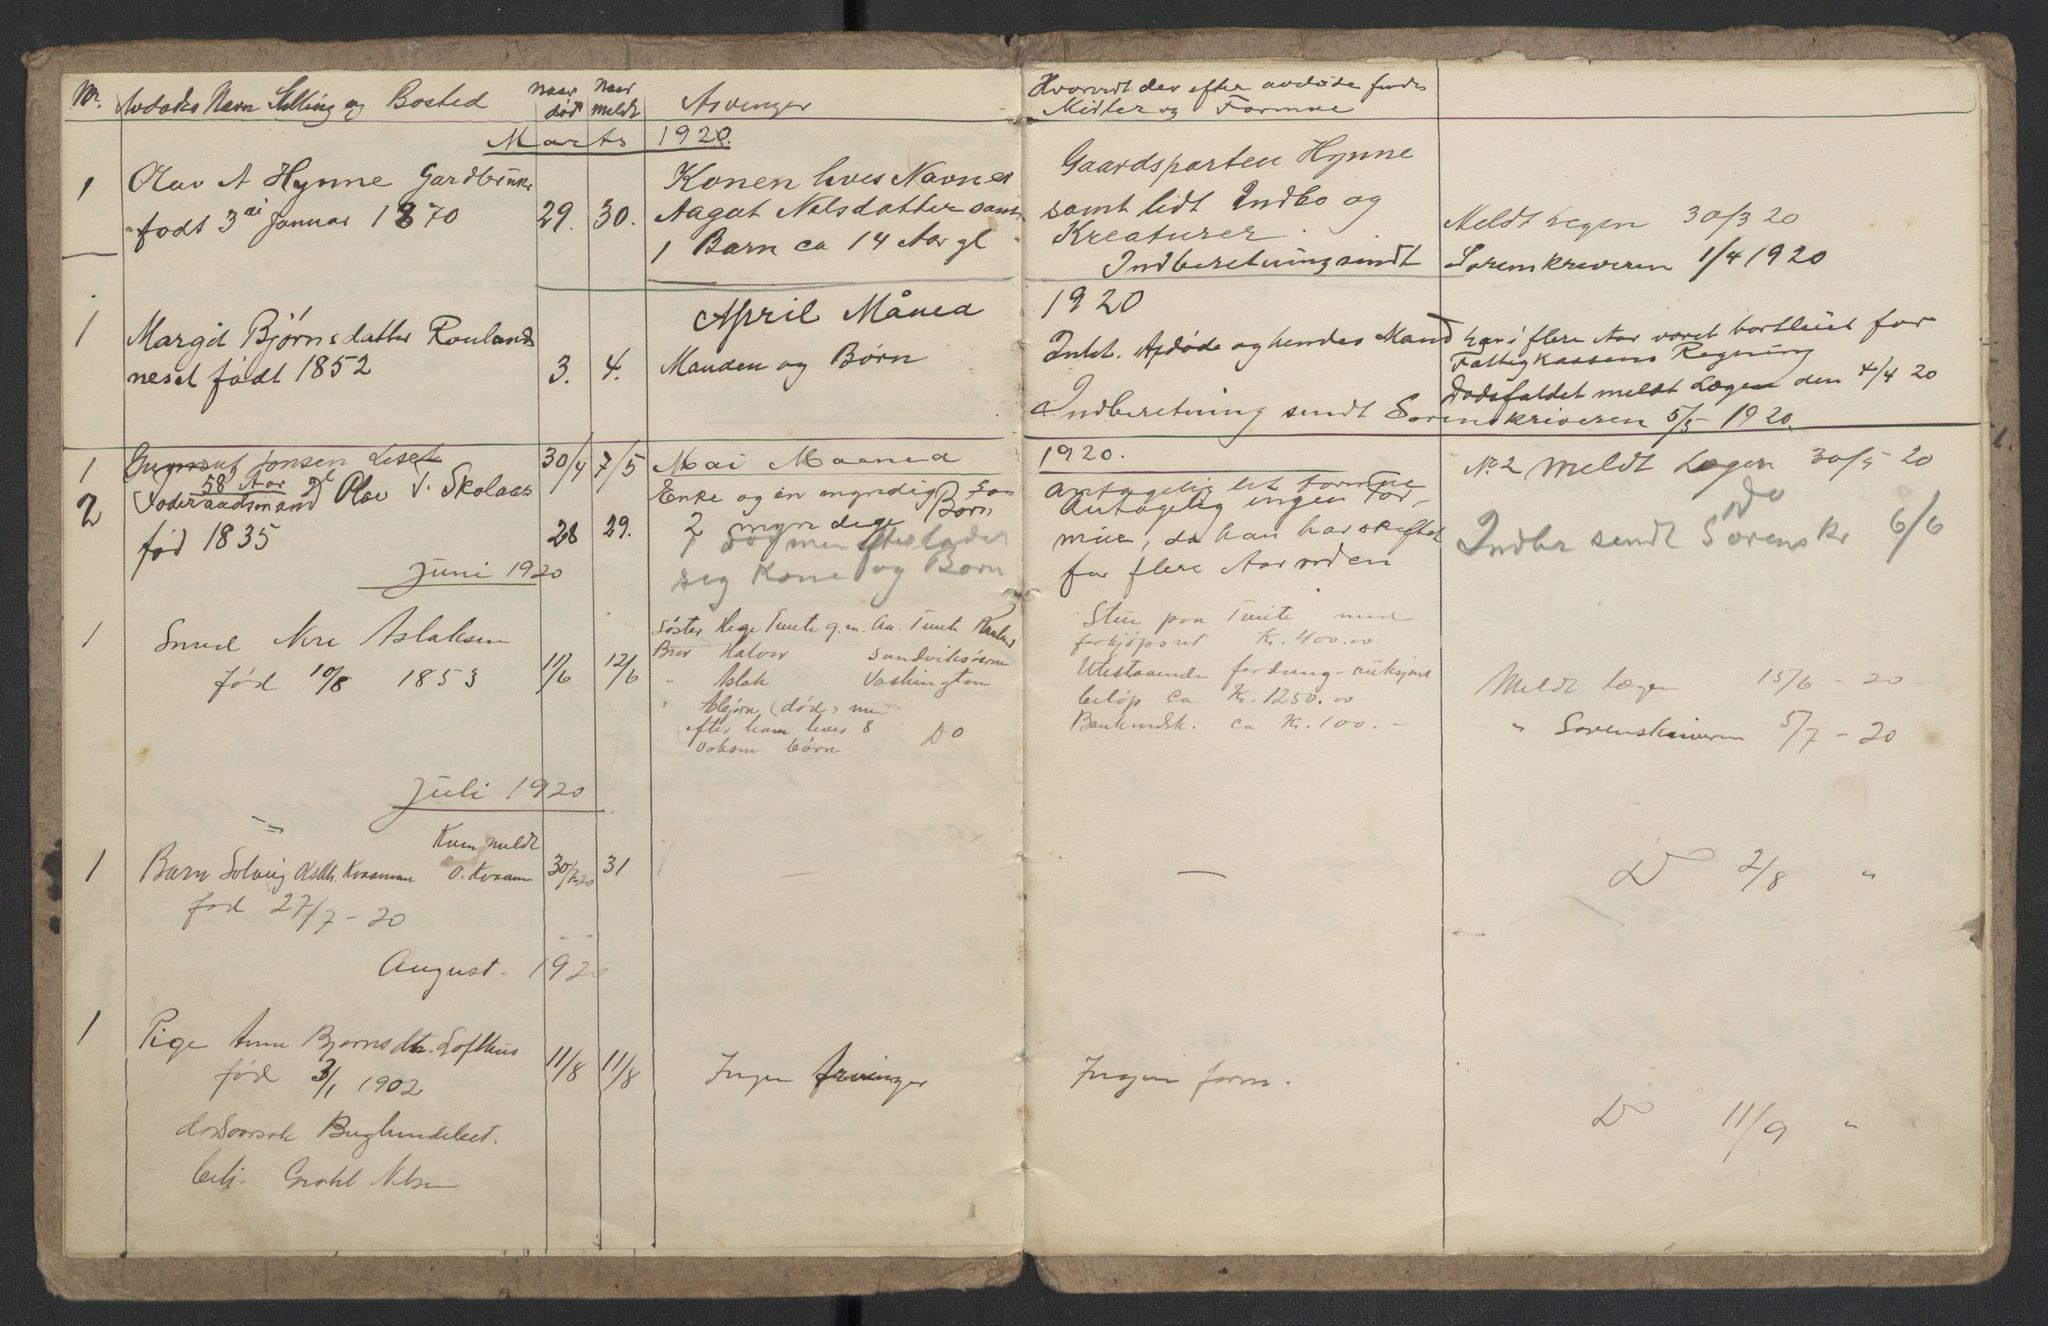 Nr. Avdødes Navn Stilling og Bosted Naar død Naar meldt Arvinger Hvorvidt der efter avdøde findes
Midler og Formue
Marts 1920.
1 Olav A Hynne Gardbruker
født 3die Januar 1870 29. 30.
Konen hves Navn er
Aagat Nelsdatter samt
1 Barn ca 14 Aar gl
Gaardsparten Hynne
samt lidt Indbo og
Kreaturer.
Indberetning sendt
Meldt Legen 30/3 20
Sorenskriveren 1/4 1920
April Måned 1920
1 Margit Bjørnsdatter Rouland
neset født 1852 3. 4. Manden og Børn
Intet. Afdøde og hendes Mand har i flere Aar været bortleiet for
Fattigkassens Regning
Dødsfaldet meldt Lægen den 4/4 20
Indberetning sendt Sorenskriveren 5/5 1920.
1 Jonsen 30/4 7/5 Mai Maaned 1920.
58 Aar gl
Enke og en myndig Søn
antagelig lit formue
No. 2 Meldt Legen 30/5 20
2 Føderaadsmand Olav Skolaas
fød 1835 28 29.
2 myndige Børn
1 død men efterlader
seg Kone og Børn
Antagelig ingen For-
mue, da han har skiftet
for flere Aar siden
Indber sendt Sorenskr 6/6
Juni 1920
1 Smed Nere Aslaksen
fød 10/8 1853 11/6 12/6
Søster Hege Tveite g.m. An. Tveite Rauland
Bror Halvor
" Aslak Vashington
" (død) men
efter ham leves 8
voksne børn Do
Stue paa Tveite med
forkjøpsret Kr. 400.00
Utestaaende fordring - auksjons
beløp ca Kr. 1250.00
Bankindsk. ca Kr. 100.-
Meldt Lægen 15/6 - 20
" Sorenskriveren 5/7 - 20
Juli 1920
Kun meldt
1 Barn Solveig Kvaamen O. Kvaam 30/7 20 31 — —
fød 27/7 - 20
D 2/8 "
August. 1920
1 Pige Anne Bjørnsdtr. Lofthus
fød 3/1 1902 11/8 11/8 Ingen Arvinger Ingen form.
dødsaarsak Bughindebet.
D 11/9 "